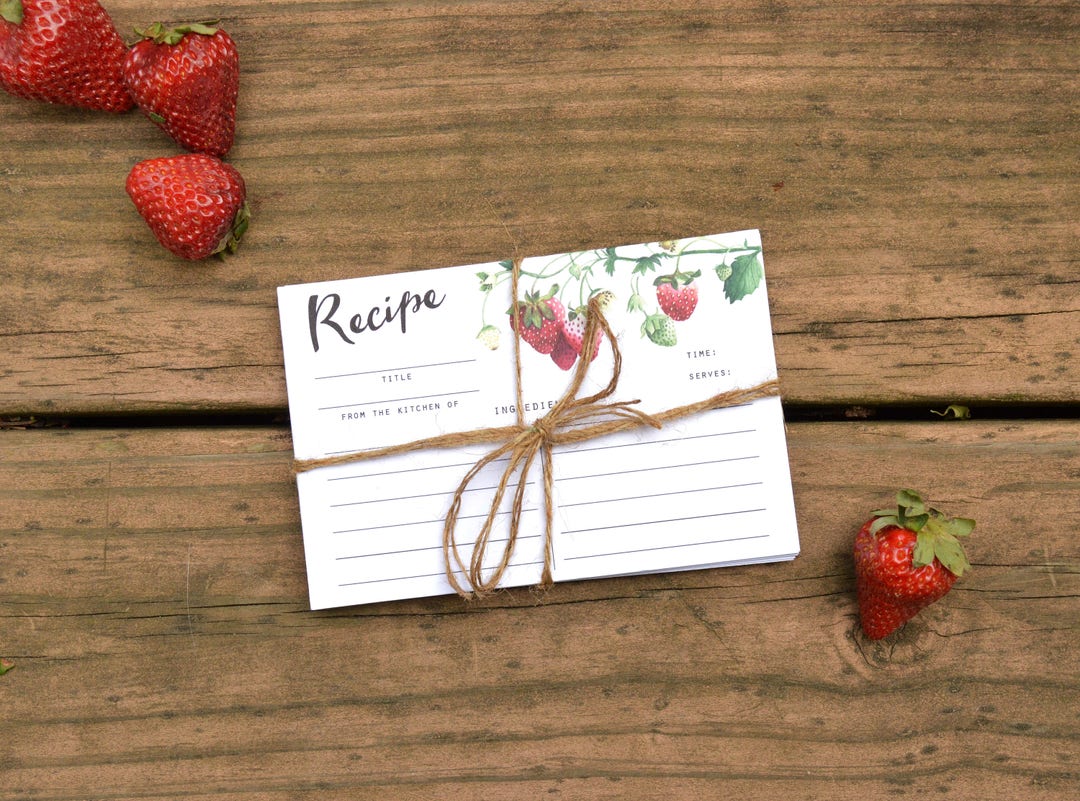 Recipe
TITLE
FROM THE KITCHEN OF
TIME:
SERVES: